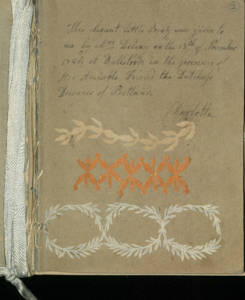 This elegant little Book was given to
me by Mrs. Delany on the 15th of November
1781 at Bulstrode in the presence of
Her Amiable Friend the Dutchess
Dowager of Portland.
Charlotte